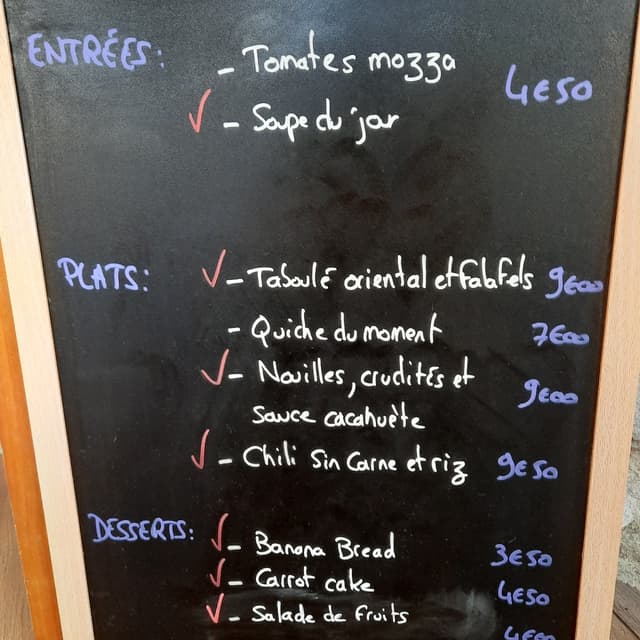 ENTRÉES: - Tomates mozza
4€50
✓ - Soupe du jour
PLATS: ✓ - Taboulé oriental et falafels 9€00
- Quiche du moment 7€00
✓ - Nouilles, crudités et
sauce cacahuète 9€00
✓ - Chili Sin Carne et riz 9€50
DESSERTS: ✓ - Banana Bread 3€50
✓ - Carrot cake 4€50
✓ - Salade de fruits